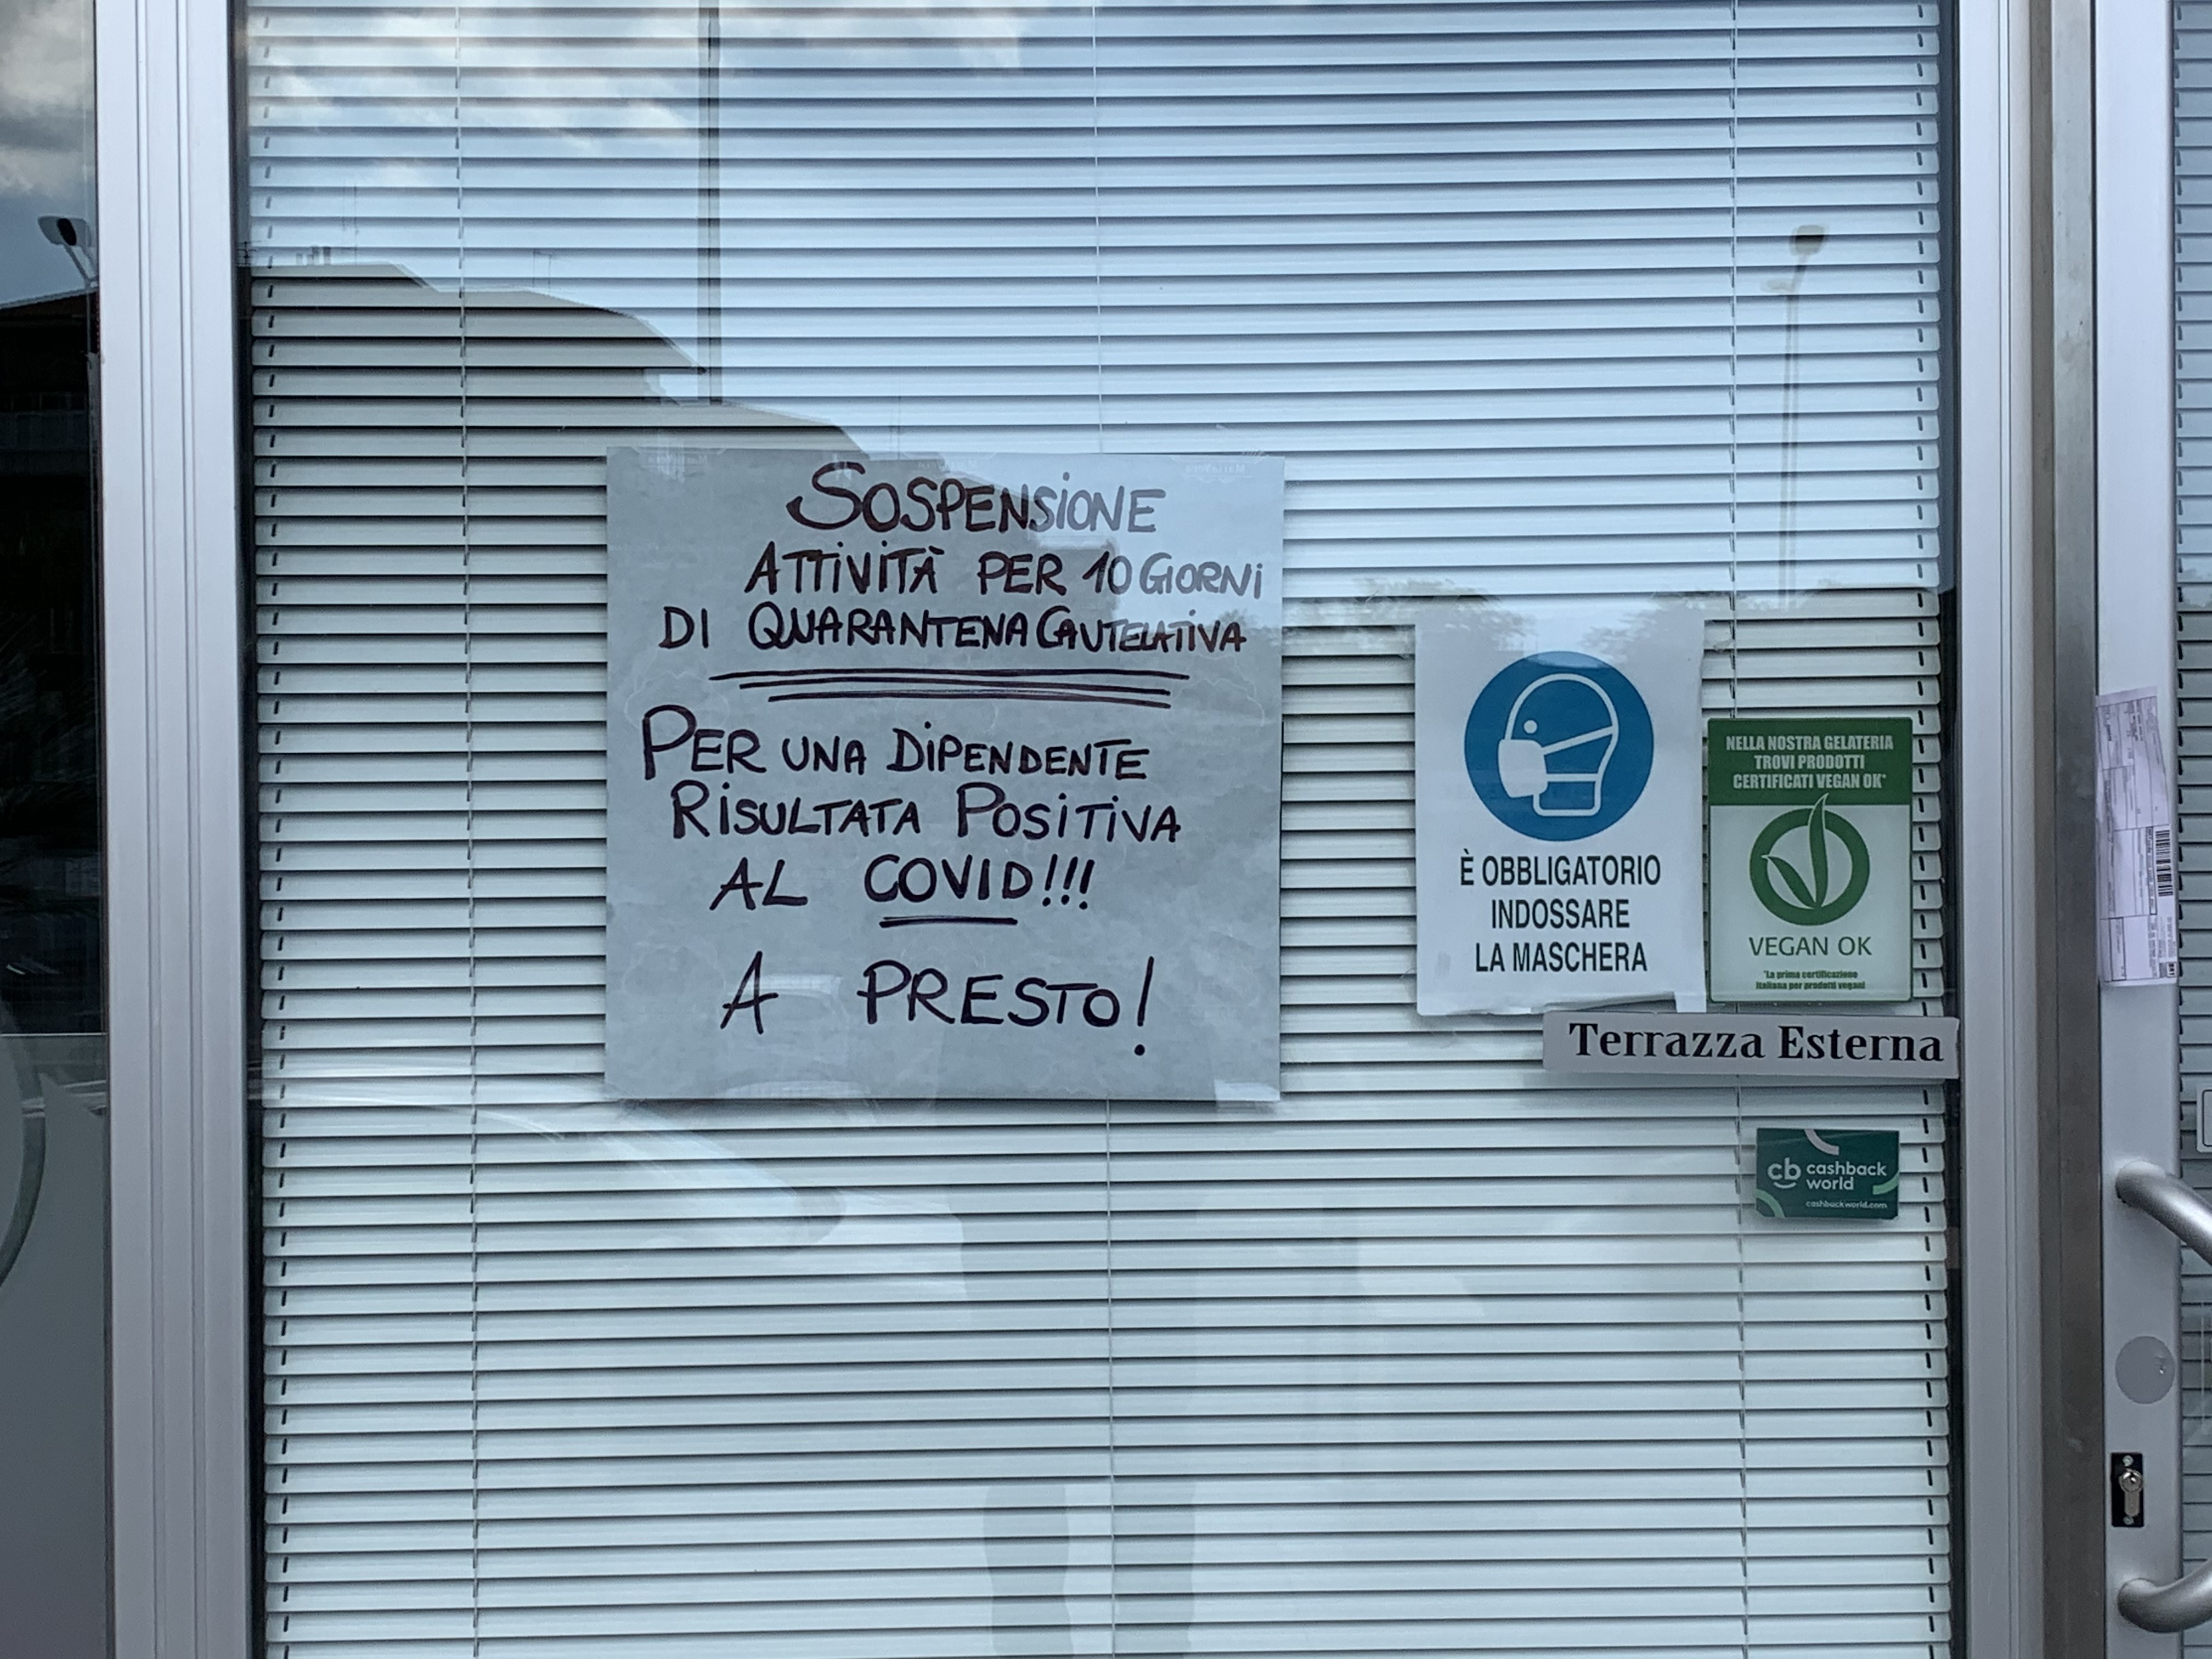 SOSPENSIONE
ATTIVITÀ PER 10 GIORNI
DI QUARANTENA CAUTELATIVA
PER UNA DIPENDENTE
RISULTATA POSITIVA
AL COVID!!!
A PRESTO!
È OBBLIGATORIO
INDOSSARE
LA MASCHERA
NELLA NOSTRA GELATERIA
TROVI PRODOTTI
CERTIFICATI VEGAN OK*
VEGAN OK
*La prima certificazione
italiana per prodotti vegani
Terrazza Esterna
cb cashback
world
cashbackworld.com